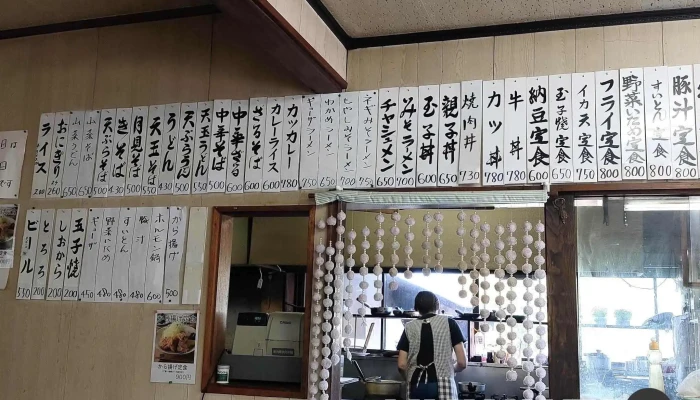 豚汁定食 800
すいとん定食 800
野菜いため定食 800
フライ定食 800
イカ天定食 750
玉子焼定食 650
納豆定食 600
牛丼 780
カツ丼 780
焼肉丼 730
親子丼 650
玉子丼 600
みそラーメン 700
チャシュメン 650
ネギみそラーメン
もやしみそラーメン 700
わかめラーメン 650
ラーメン
カツカレー 780
カレーライス 600
ざるそば 600
中華ざる 600
中華そば 500
天玉うどん
天ぷらうどん 500
うどん
天玉そば 550
月見そば
きそば 430
天ぷらそば 500
山菜そば 650
山菜うどん 650
おにぎり
ライス 260
から揚げ 500
ホルモン鍋 600
豚汁 480
すいとん 480
野菜いため 480
ギョーザ 450
玉子焼 200
しおから 200
とろろ 200
ビール 550
から揚げ定食
900円